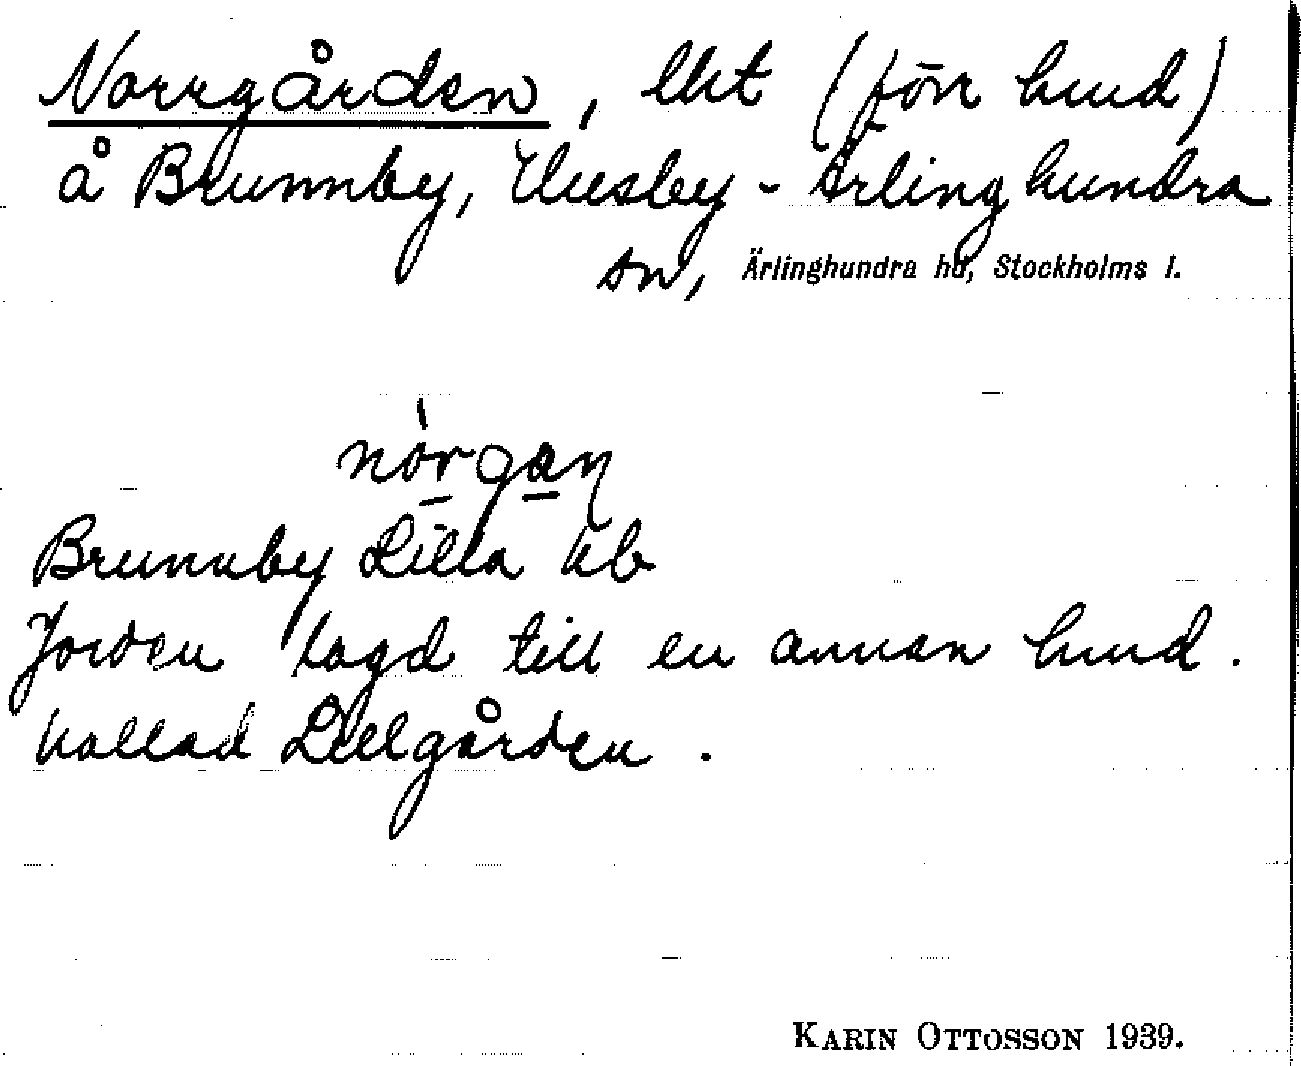 Norrgården, lht (förr hmd)
å Brunnby, Husby-Ärlinghundra
sn, Ärlinghundra hd, Stockholms l.
nòrgan
Brunnby Lilla kb
Jorden lagd till en annan hmd.
kallad Lillgården.
KARIN OTTOSSON 1939.